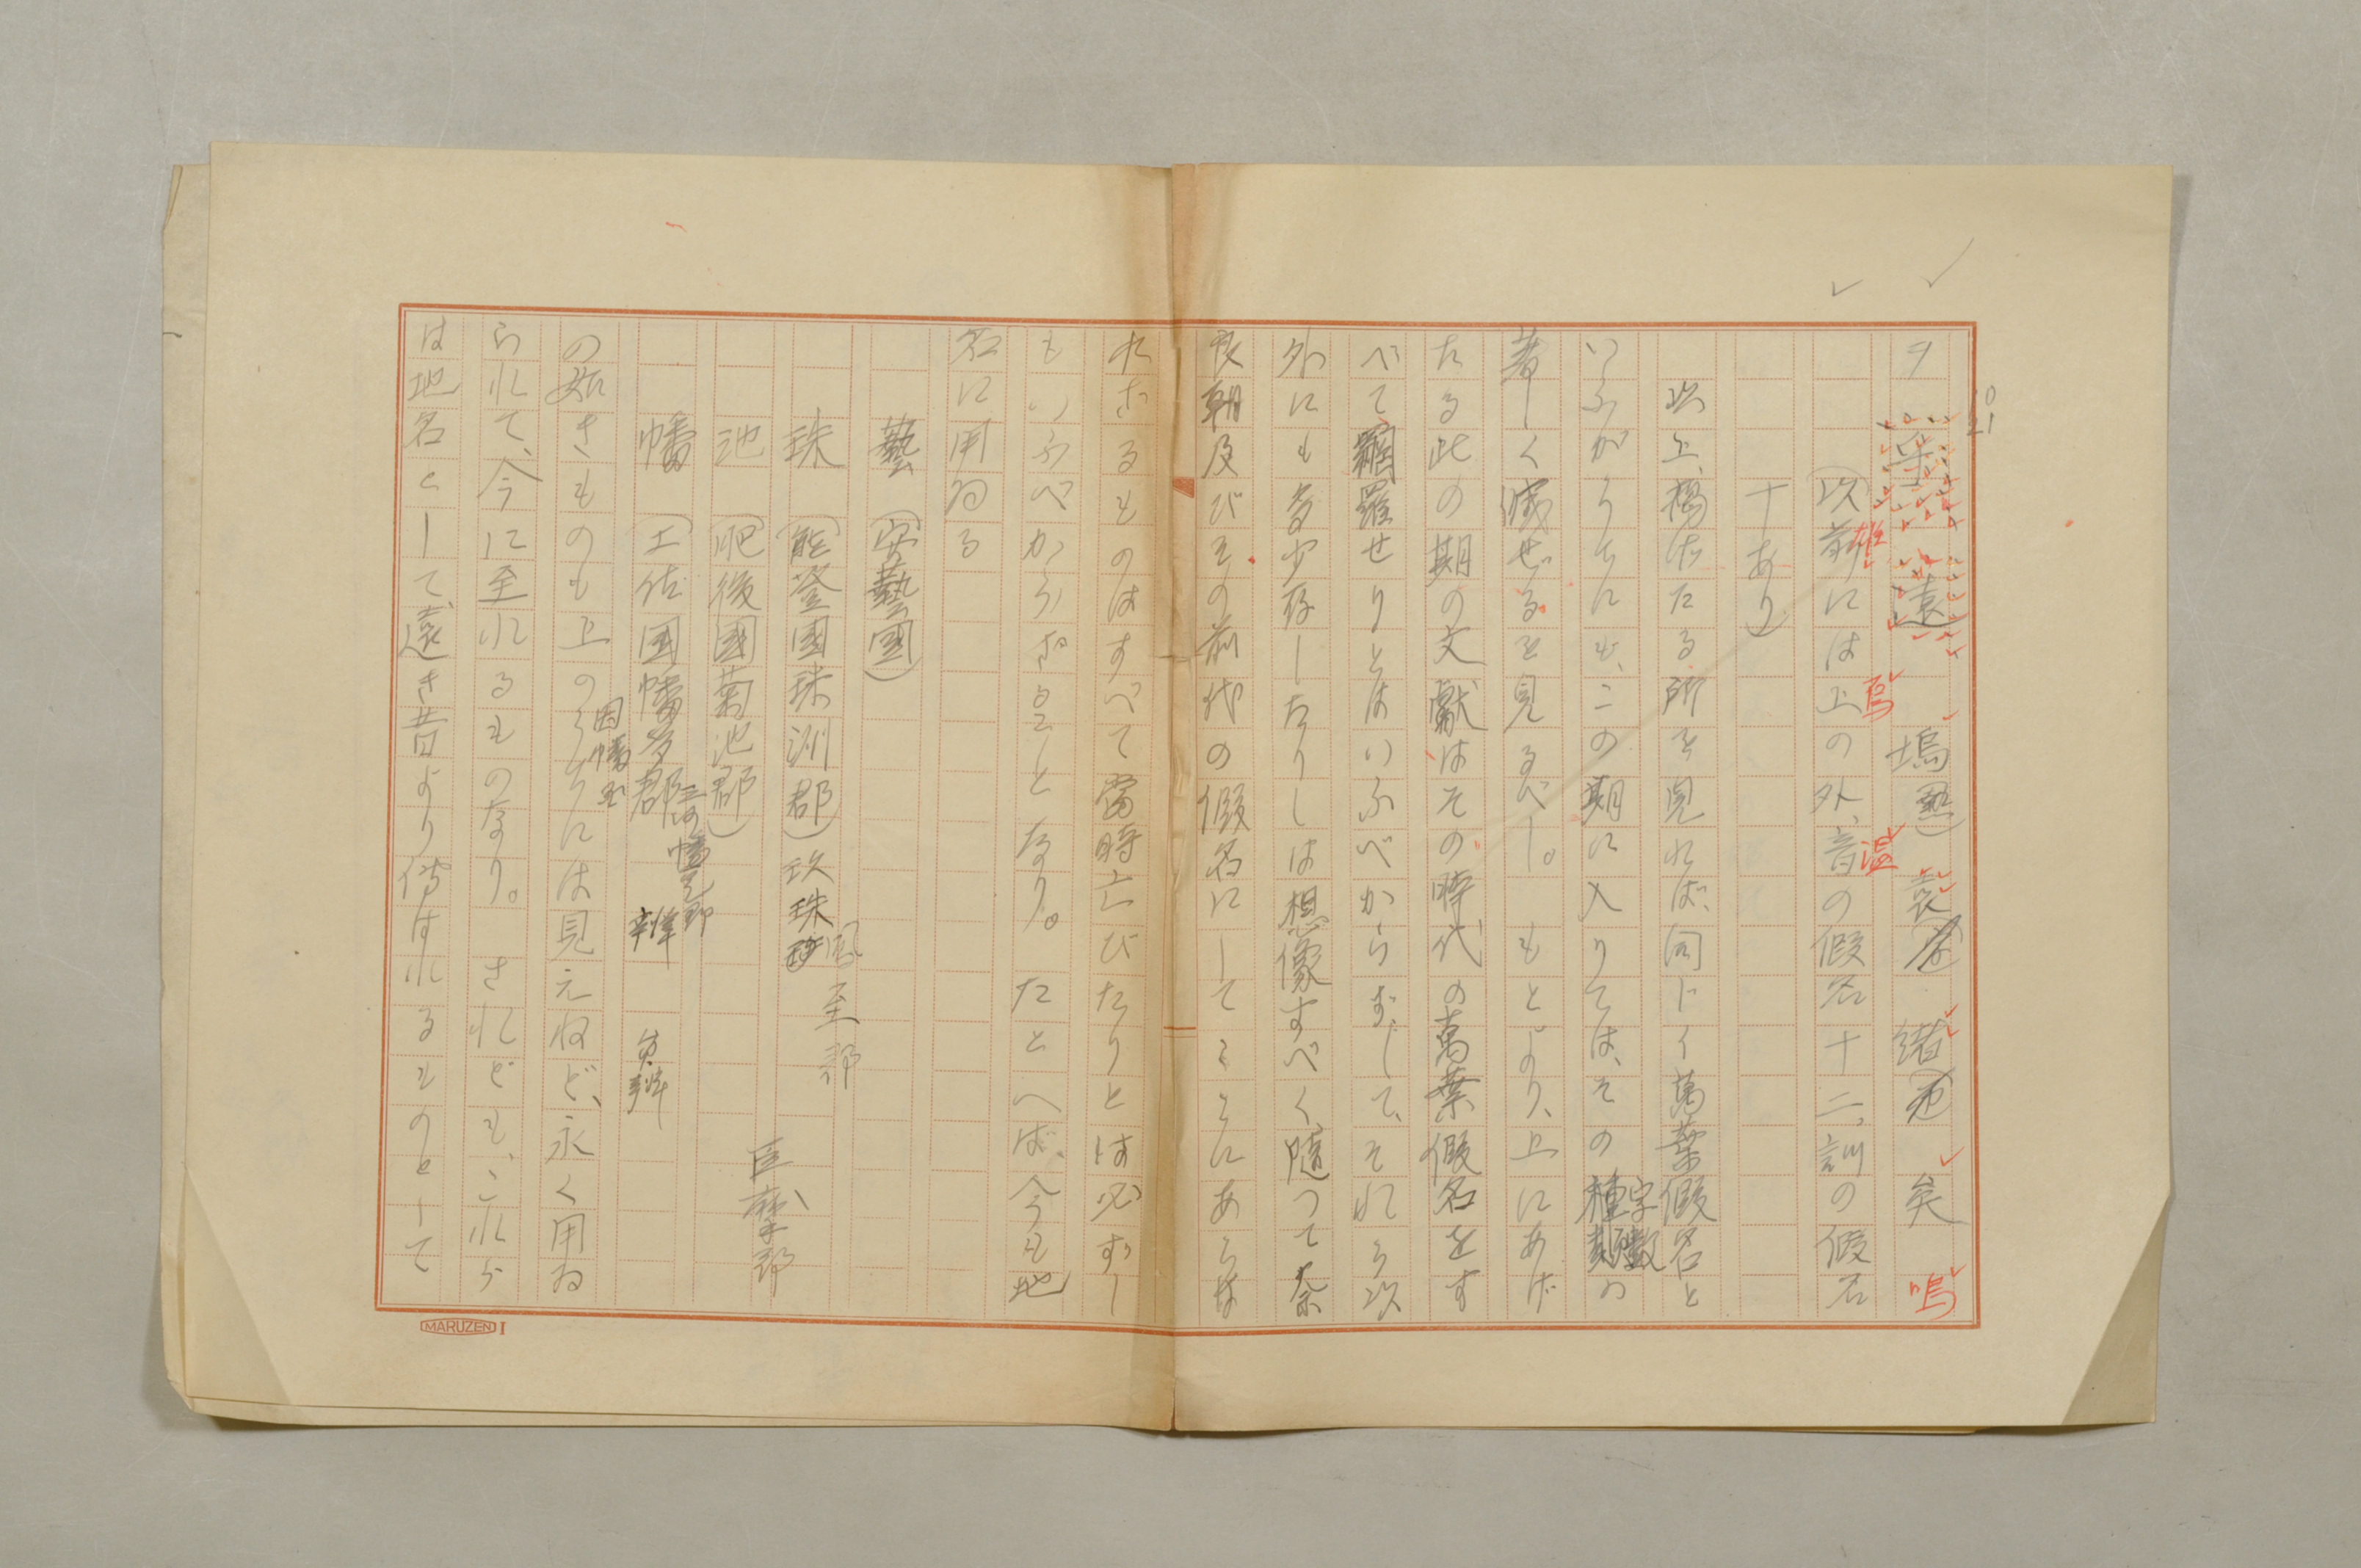 ヲ 乎 遠 塢 袁 緒 矣 嗚
10
21
(以前には上の外、音の假名十二、訓の假名
雄 烏 温
十あり)
此上、掲げたる所を見れば、同じく萬葉假名と
いふがうちにも、この期に入りては、その種類の
字數
著しく減ぜるを見るべし。もとより、上にあげ
たる此の期の文獻はその時代の萬葉假名をす
べて網羅せりとはいふべからずして、それら以
外にも多少存したりしは想像すべく、隨つて奈
良朝及びその前代の假名にしてこゝにあらは
れざるものはすべて當時亡びたりとは必ずし
もいふべからざることなり。たとへば、今も地
名に用ゐる
藝 (安藝國)
珠 (能登國珠洲郡) 玖珠
至郡
池 (肥後國菊池郡) 巨摩郡
幡 (土佐國幡多郡
因幡
幡豆郡
の如きものも上のうちには見えねど、永く用ゐ
られて、今に至れるものなり。されども、これら
は地名として、遠き昔より傳はれるものとして
MARUZEN I